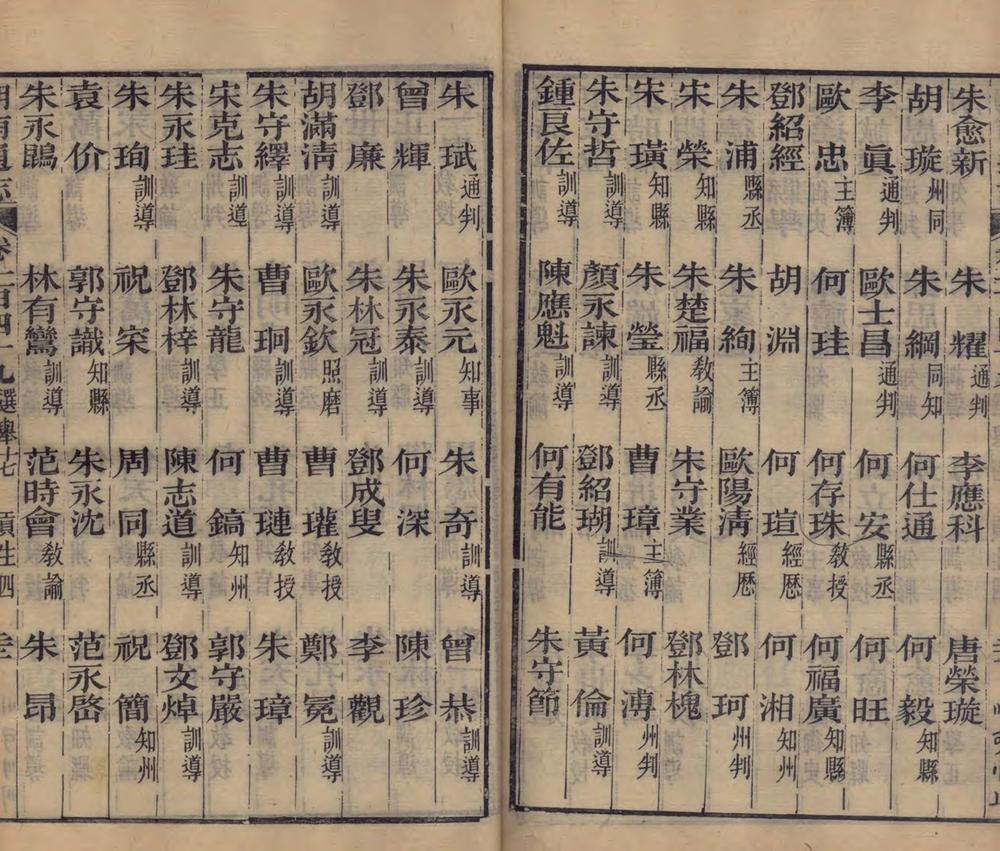 朱愈新 朱耀通判 李應科 唐榮璇
胡璇州同 朱綱同知 何仕通 何毅知縣
李眞通判 歐士昌通判 何安縣丞 何旺
歐忠主簿 何珪 何存珠教授 何福廣知縣
鄧紹經 胡淵 何瑄經歷 何湘知州
朱浦縣丞 朱絢主簿 歐陽淸經歷 鄧珂州判
宋榮知縣 朱楚福教諭 朱守業 鄧林槐
宋璜知縣 朱瑩縣丞 曹璋主簿 何溥州判
朱守哲訓導 顏永諫訓導 鄧紹瑚訓導 黃倫訓導
鍾良佐訓導 陳應魁訓導 何有能 朱守節
朱斌通判 歐永元知事 朱奇訓導 曾恭訓導
曾輝 朱永泰訓導 何深 陳珍
鄧廉 朱林冠訓導 鄧成叟 李觀
胡滿淸訓導 歐永欽照磨 曹瓘教授 鄭冕訓導
朱守繹訓導 曹珦訓導 曹璉教授 朱璋
宋克志訓導 朱守龍 何鎬知州 郭守嚴
朱永珪 鄧林梓訓導 陳志道訓導 鄧文焯訓導
朱珣訓導 祝寀 周同縣丞 祝簡知州
袁价 郭守識知縣 朱永沈 范永啓
朱永鵾 林有鸞訓導 范時會教諭 朱昂
湖南通志 卷一百四十九選舉十七 貢生四